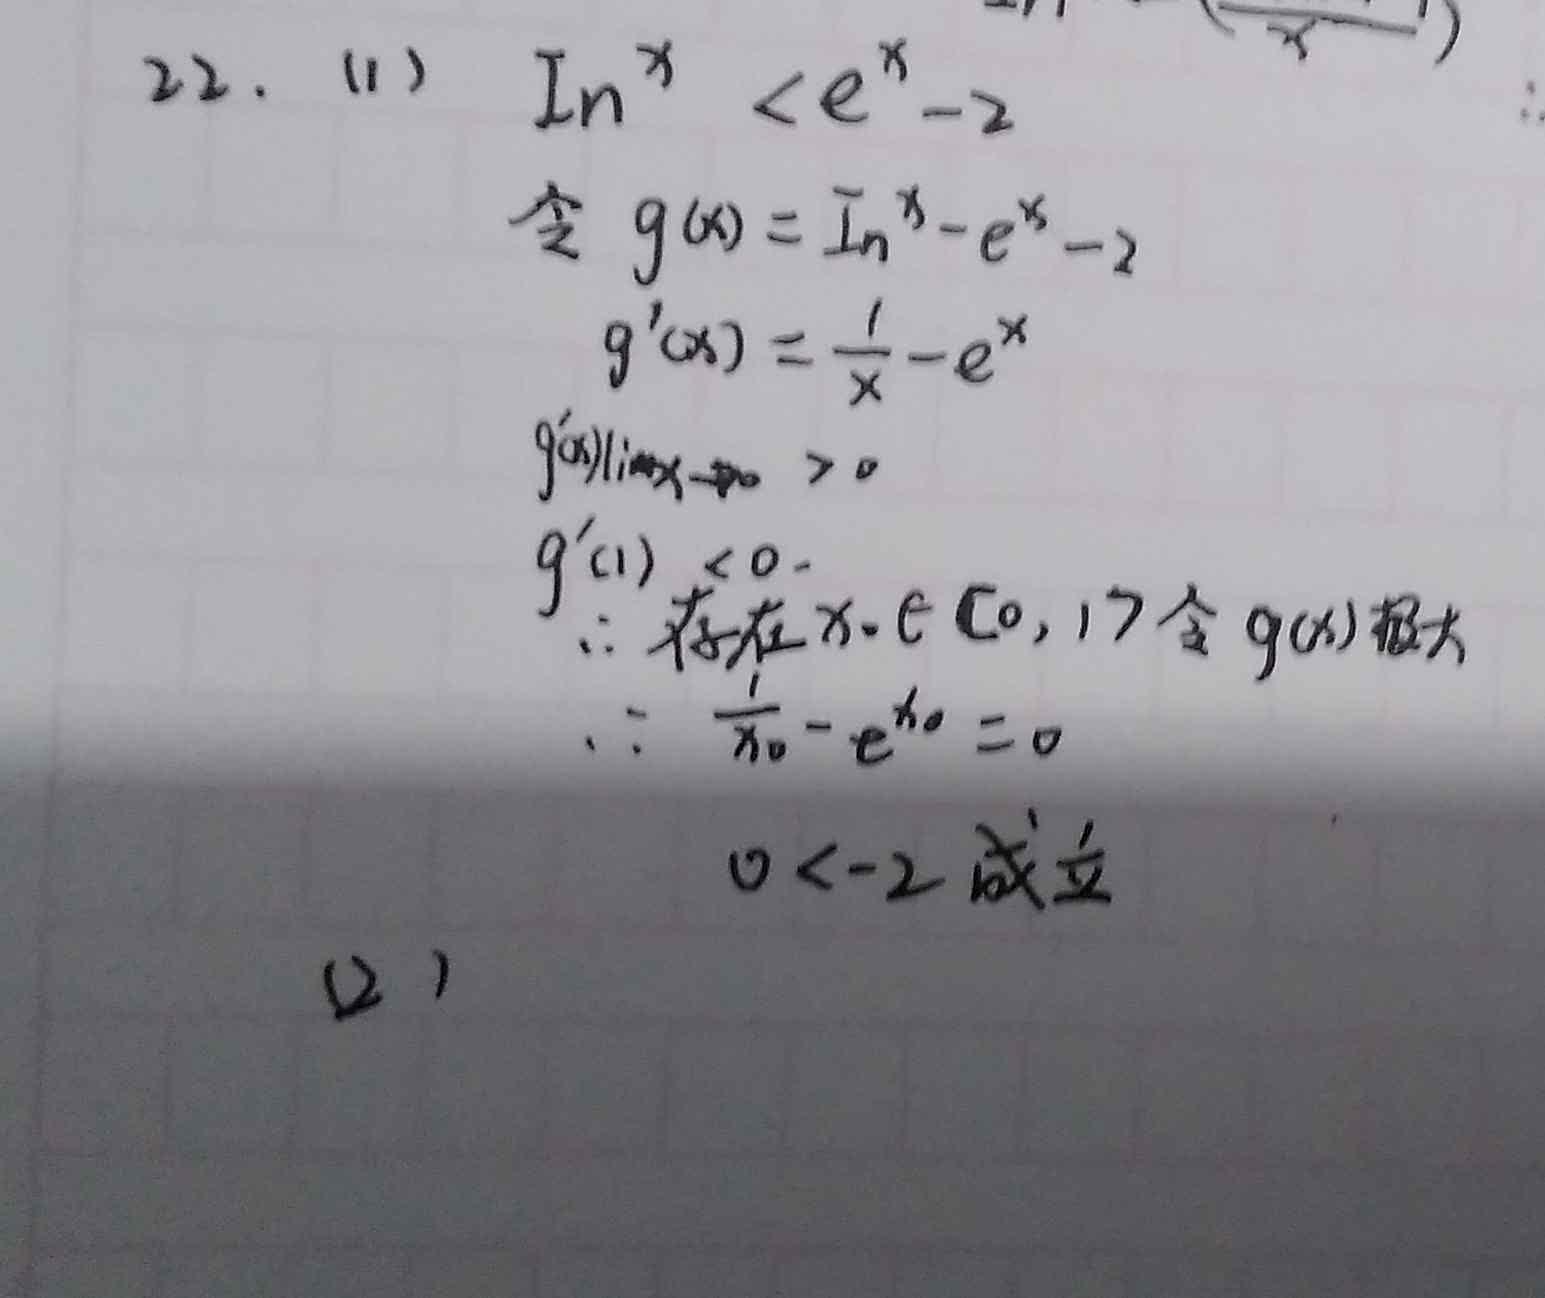 x
22. (1) In^x < e^x - 2
令 g(x) = In^x - e^x - 2
g'(x) = 1/x - e^x
g'(x) lim x→0 > 0
g'(1) < 0.
∴ 存在 x₀ ∈ [0, 1) 令 g(x) 极大
∴ 1/x₀ - e^x₀ = 0
0 < -2 成立
(2)